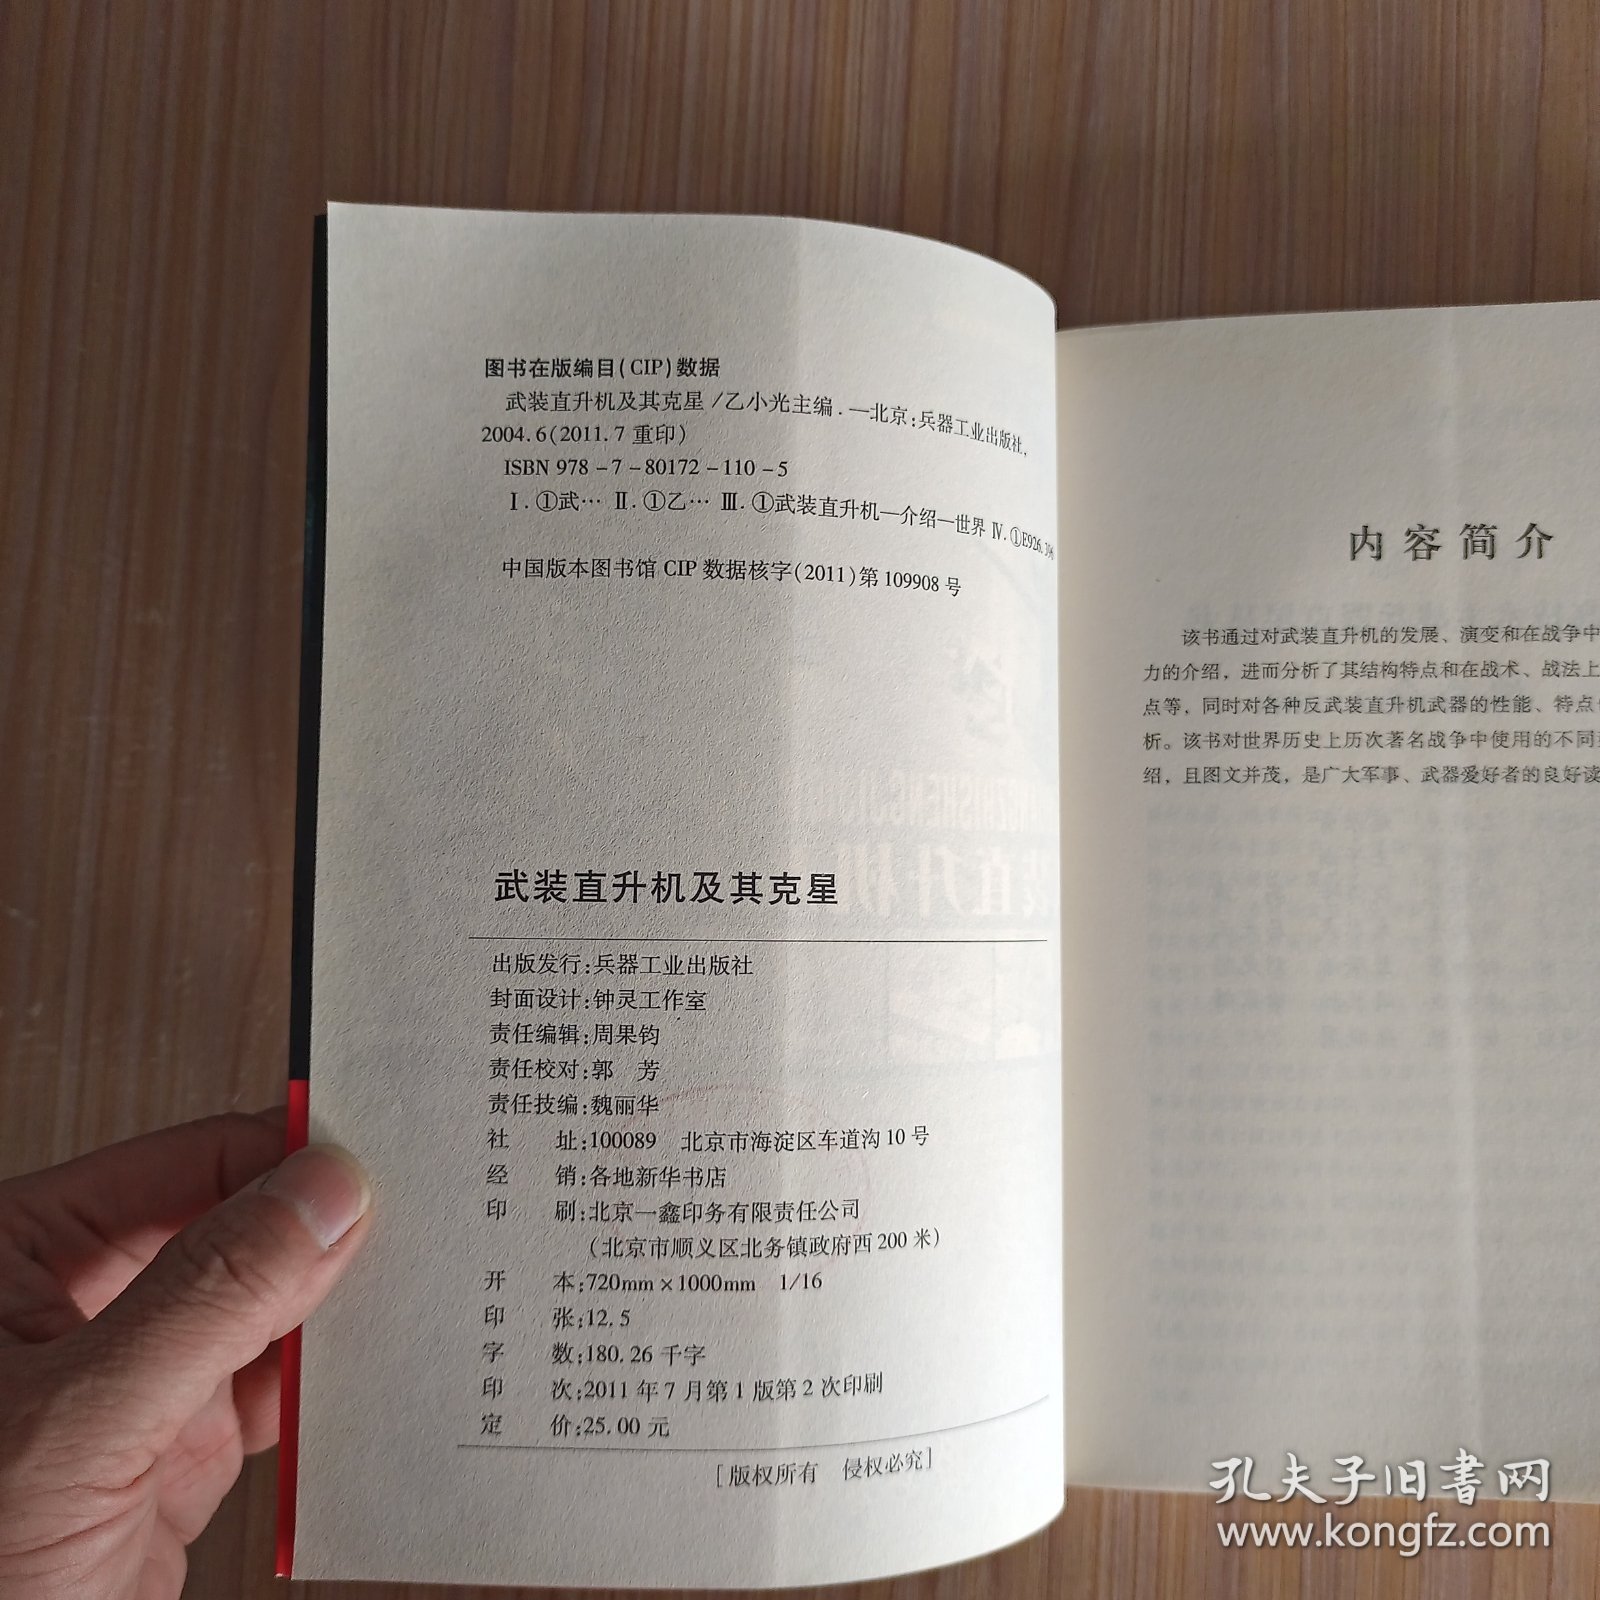 图书在版编目(CIP)数据
武装直升机及其克星/乙小光主编.—北京:兵器工业出版社,
2004.6(2011.7重印)
ISBN 978-7-80172-110-5
Ⅰ.①武… Ⅱ.①乙… Ⅲ.①武装直升机—介绍—世界 Ⅳ.①E926.396
中国版本图书馆CIP数据核字(2011)第109908号
武装直升机及其克星
出版发行:兵器工业出版社
封面设计:钟灵工作室
责任编辑:周果钧
责任校对:郭 芳
责任技编:魏丽华
社 址:100089 北京市海淀区车道沟10号
经 销:各地新华书店
印 刷:北京一鑫印务有限责任公司
(北京市顺义区北务镇政府西200米)
开 本:720mm×1000mm 1/16
印 张:12.5
字 数:180.26千字
印 次:2011年7月第1版第2次印刷
定 价:25.00元
[版权所有 侵权必究]
内容简介
该书通过对武装直升机的发展、演变和在战争中
力的介绍，进而分析了其结构特点和在战术、战法上
点等，同时对各种反武装直升机武器的性能、特点
析。该书对世界历史上历次著名战争中使用的不同
绍，且图文并茂，是广大军事、武器爱好者的良好读
孔夫子旧书网
www.kongfz.com